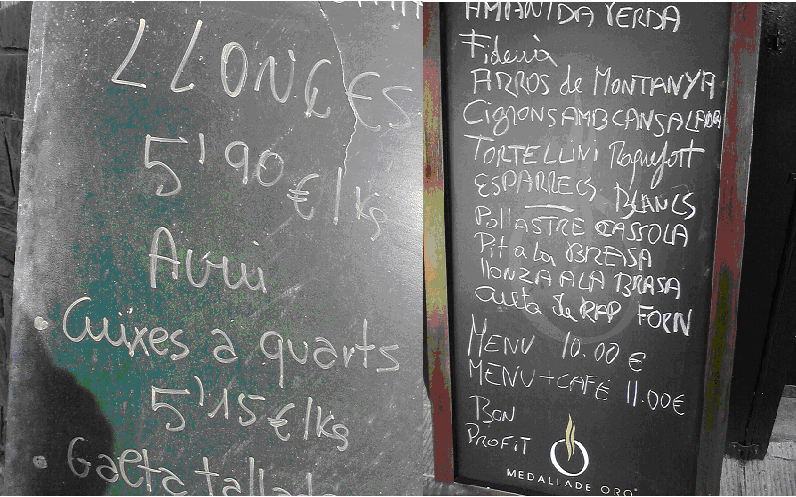 LLONÇES
5'90 €/kg
Avui
• Cuixes a quarts
5'15 €/kg
• Galta tallada
AMANIDA VERDA
Fideuà
ARROS de MONTANYA
CigRONS AMB CANSALADA
TORTELLINI Roquefort
ESPARRECS BLANCS
POLLASTRE CASSOLA
Pit a la BRASA
llonza A LA BRASA
cueta de RAP FORN
MENU 10.00 €
MENU + CAFÉ 11.00€
BON
PROFIT
MEDALLA DE ORO